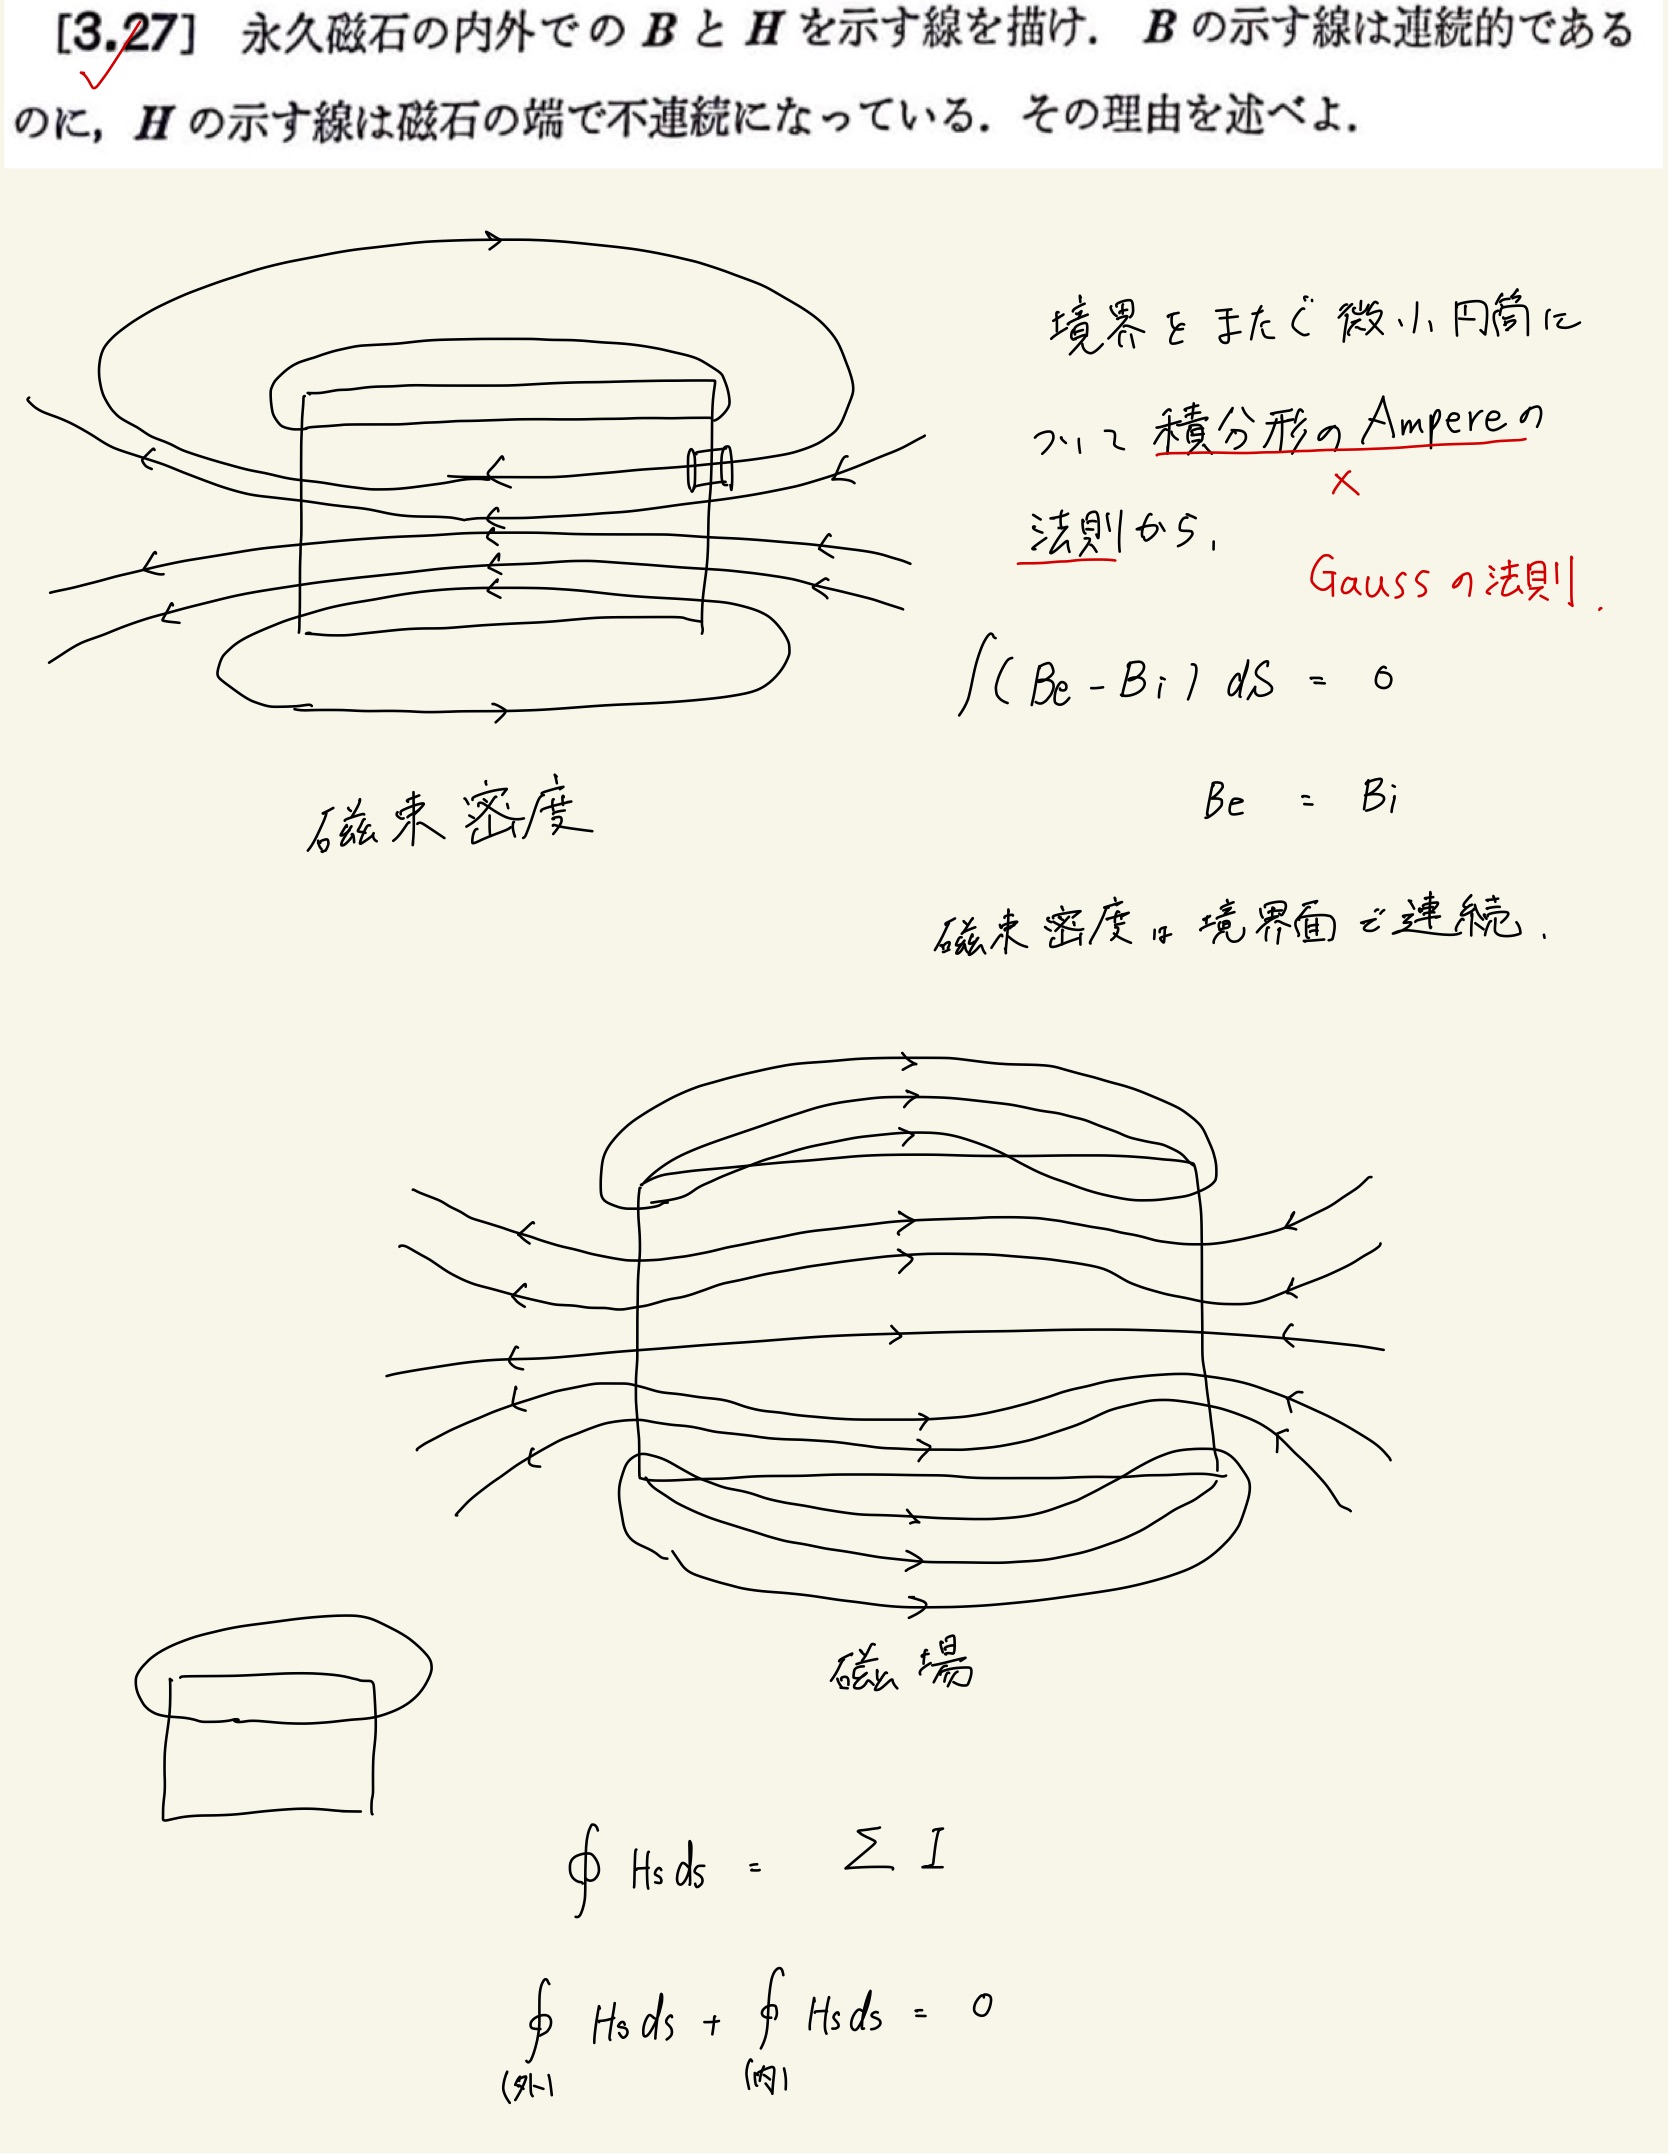 [3.27] 永久磁石の内外での B と H を示す線を描け. B の示す線は連続的である
のに, H の示す線は磁石の端で不連続になっている. その理由を述べよ.
境界をまたぐ微小円筒に
ついて積分形のAmpereの
×
法則から,
Gaussの法則.
∫(Be-Bi)dS = 0
Be = Bi
磁束密度
磁束密度は境界面で連続.
磁場
∮ Hs ds = Σ I
∮ Hs ds + ∮ Hs ds = 0
(外) (内)